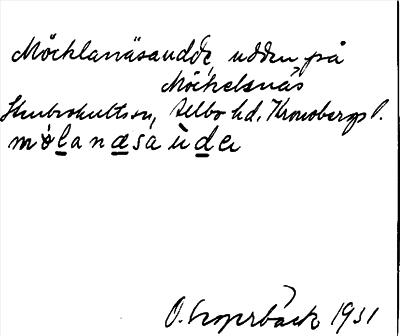 Möcklanäsaudde, udden på
Möckelsnäs
Stenbrohults sn, Allbo hd. Kronobergs l.
mölanæsa ude
O. 1931